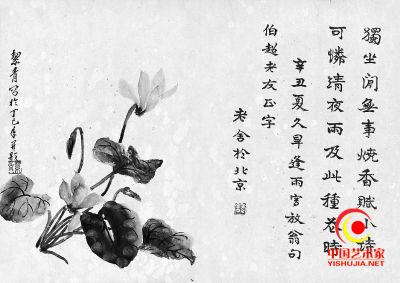 獨坐閒無事燒香賦小詩
可憐清夜雨及此種花時
辛丑夏久旱逢雨寫放翁句
伯超老友正字
老舍於北京
絜青寫於丁巳年並題
中国艺术家
YISHUJIA.NET